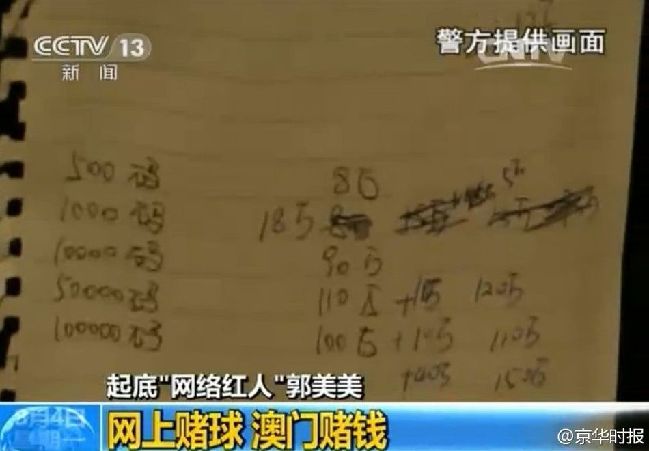 CCTV 13
新闻
警方提供画面
CNTV
500码 8万
5万
1000码 18万
10000码 90万
50000码 110万 +10万 120万
100000码 100万 +10万 110万
+40万 150万
起底"网络红人"郭美美
8月4日
星期一
网上赌球 澳门赌钱
@京华时报